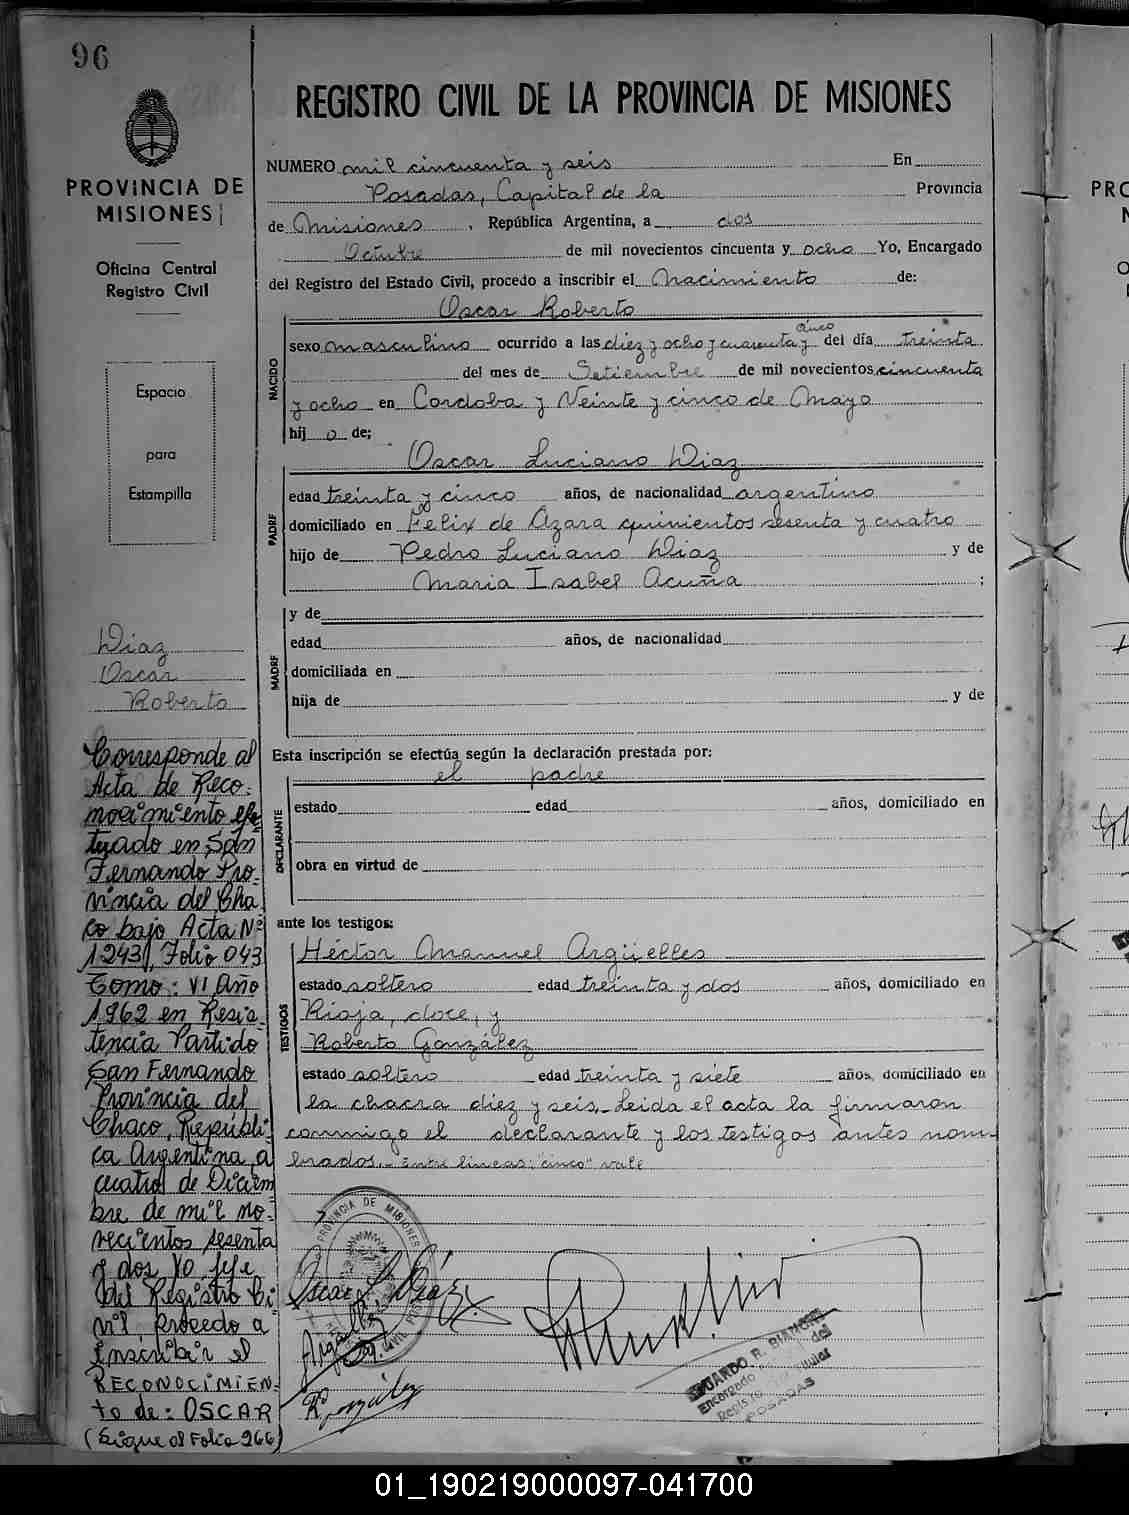 96
PROVINCIA DE
MISIONES
Oficina Central
Registro Civil
Espacio
para
Estampilla
Diaz
Oscar
Roberto
Corresponde al
Acta de Reco-
nocimiento efec
tuado en San
Fernando Pro-
vincia del Cha
co bajo Acta Nº
1243, Folio 043
Tomo: VI, Año
1962 en Resis-
tencia Partido
San Fernando
Provincia del
Chaco, Repúbli-
ca Argentina, a
cuatro de Diciem
bre de mil no-
vecientos sesenta
y dos Yo, jefe
del Registro Ci-
vil, Procedo a
inscribir el
RECONOCIMIEN-
to de: OSCAR
(Sigue al Folio 266)
REGISTRO CIVIL DE LA PROVINCIA DE MISIONES
NUMERO mil cincuenta y seis En
Posadas, Capital de la Provincia
de Misiones, República Argentina, a dos
Octubre de mil novecientos cincuenta y ocho Yo, Encargado
del Registro del Estado Civil, procedo a inscribir el Nacimiento de:
Oscar Roberto
NACIDO
cinco
sexo masculino ocurrido a las diez y ocho y cuarenta y del día treinta
del mes de Setiembre de mil novecientos cincuenta
y ocho en Cordoba y Veinte y cinco de Mayo
hij o de;
Oscar Luciano Diaz
PADRE
edad treinta y cinco años, de nacionalidad argentino
domiciliado en Felix de Azara quinientos sesenta y cuatro
hijo de Pedro Luciano Diaz y de
Maria Isabel Acuña ;
y de
MADRE
edad años, de nacionalidad
domiciliada en
hija de y de
Esta inscripción se efectúa según la declaración prestada por:
el padre
DECLARANTE
estado edad años, domiciliado en
obra en virtud de
ante los testigos:
Héctor Manuel Argüelles
TESTIGOS
estado soltero edad treinta y dos años, domiciliado en
Rioja, doce, y
Roberto González
estado soltero edad treinta y siete años, domiciliado en
la chacra diez y seis.- Leida el acta la firmaron
conmigo el declarante y los testigos antes nom-
brados.- Entre lineas: "cinco" vale
PROVINCIA DE MISIONES
Oscar L. Díaz
R González
EDUARDO R. BIANCHI
Encargado Titular del
Registro
POSADAS
01_190219000097-041700